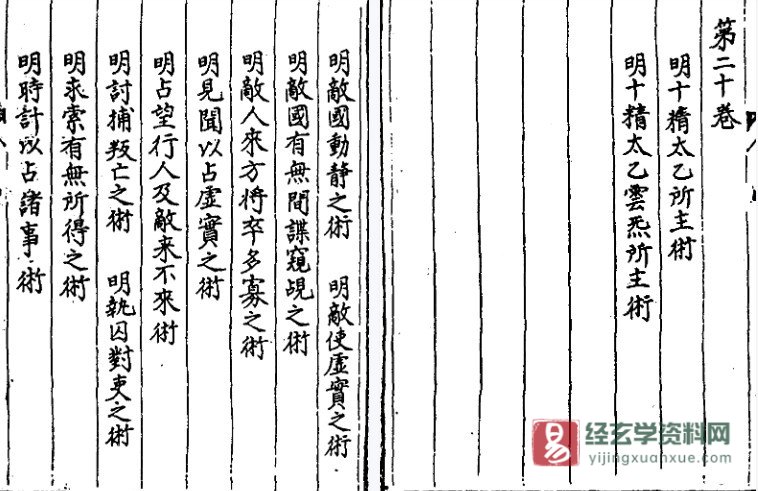 第二十卷
明十精太乙所主術
明十精太乙雲炁所主術
明敵國動靜之術　明敵使虛實之術
明敵國有無間諜窺覘之術
明敵人來方將卒多寡之術
明見聞以占虛實之術
明占望行人及敵来不來術
明討捕叛亡之術　明執囚對吏之術
明求索有無所得之術
明時計以占諸事術
易 经玄学资料网
yijingxuanxue.com